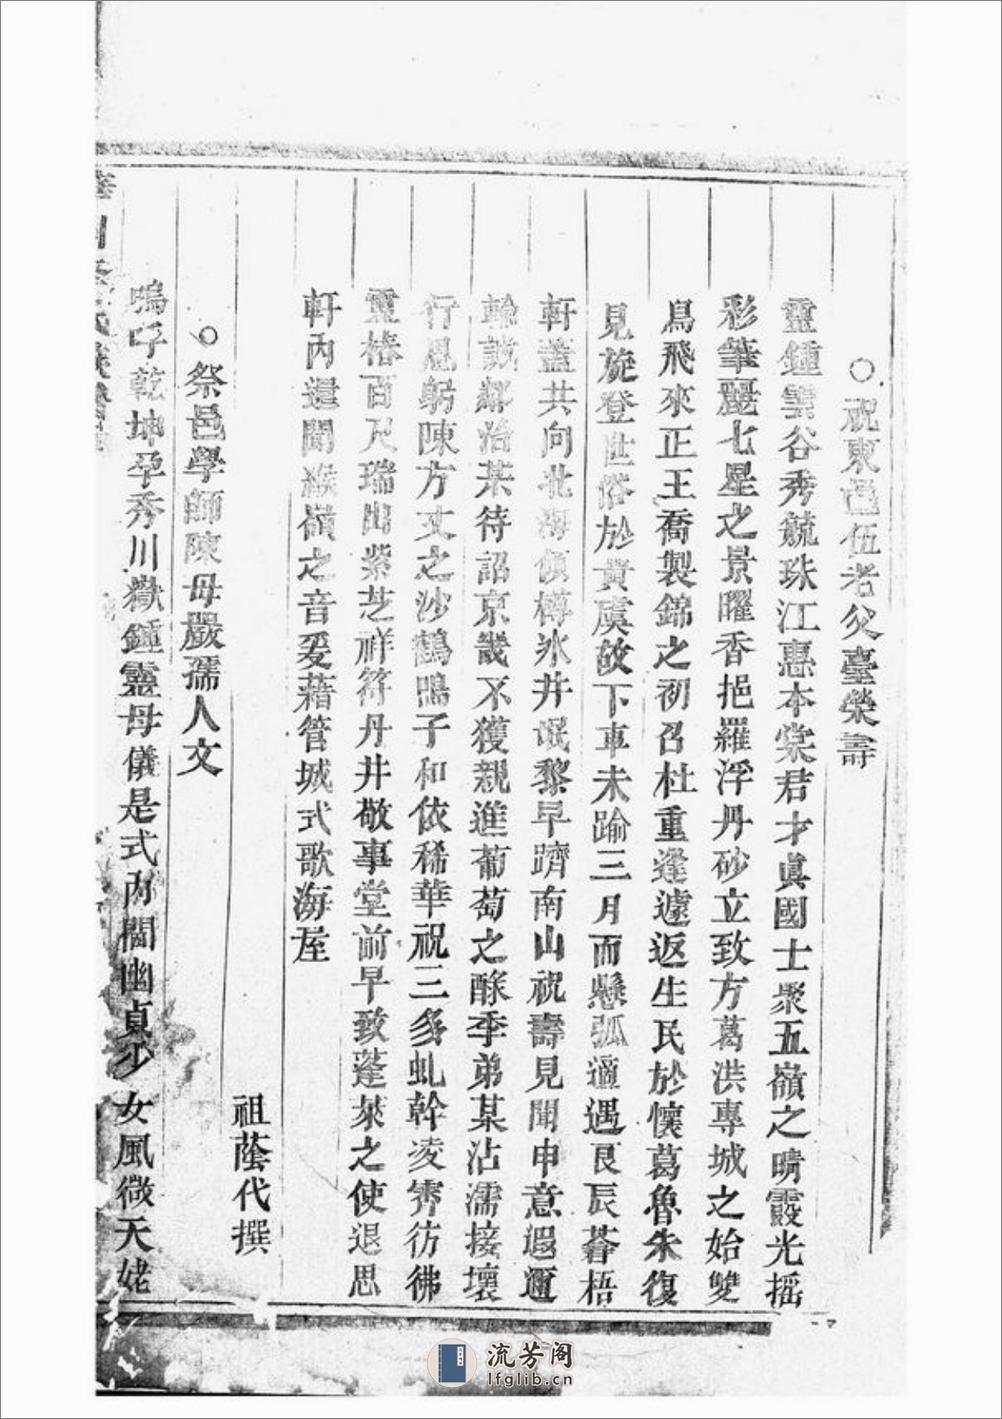 ○祝東邑伍老父臺榮壽
靈鍾雲谷秀兢珠江惠本棠君才眞國士聚五嶺之晴霞光搖
彩筆麗七星之景曜香挹羅浮丹砂立致方葛洪專城之始雙
鳥飛來正王喬製錦之初召杜重逢遽返生民於懷葛魯朱復
見旋登世俗於黃虞故下車未踰三月而懸弧適遇良辰蒼梧
軒蓋共向北海傾樽氷井氓黎早躋南山祝壽見聞申意遐邇
輸誠鄰治某待詔京畿不獲親進葡萄之酴季弟某沾濡接壤
行思躬陳方丈之沙鶴鳴子和依稀華祝三多虬幹凌霄彷彿
靈椿百尺瑞出紫芝祥符丹井敬事堂前早致蓬萊之使退思
軒內還聞緱嶺之音爰藉管城式歌海屋
祖蔭代撰
○祭邑學師陳母嚴孺人文
嗚呼乾坤孕秀川嶽鍾靈母儀是式內閫幽貞少女風微天姥
流芳阁
lfglib.cn